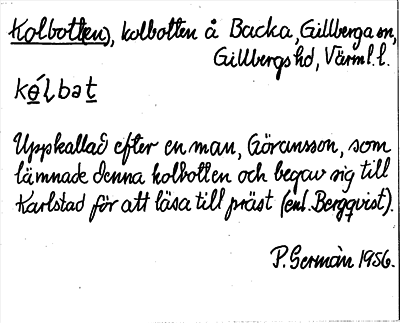 Kolbotten, kolbotten å Backa, Gillberga sn,
Gillbergs hd, Värml. l.
Uppkallad efter en man, Göransson, som
lämnade denna kolbotten och begav sig till
Karlstad för att läsa till präst (enl. Bergqvist).
P. Germàn 1956.